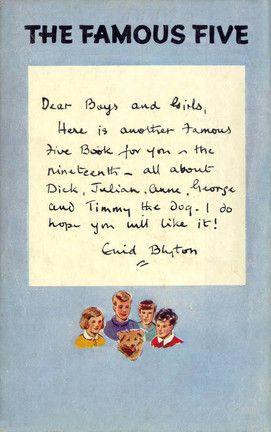 THE FAMOUS FIVE
Dear Boys and Girls,
Here is another Famous
Five Book for you - the
nineteenth - all about
Dick, Julian, Anne, George
and Timmy the Dog. I do
hope you will like it!
Enid Blyton